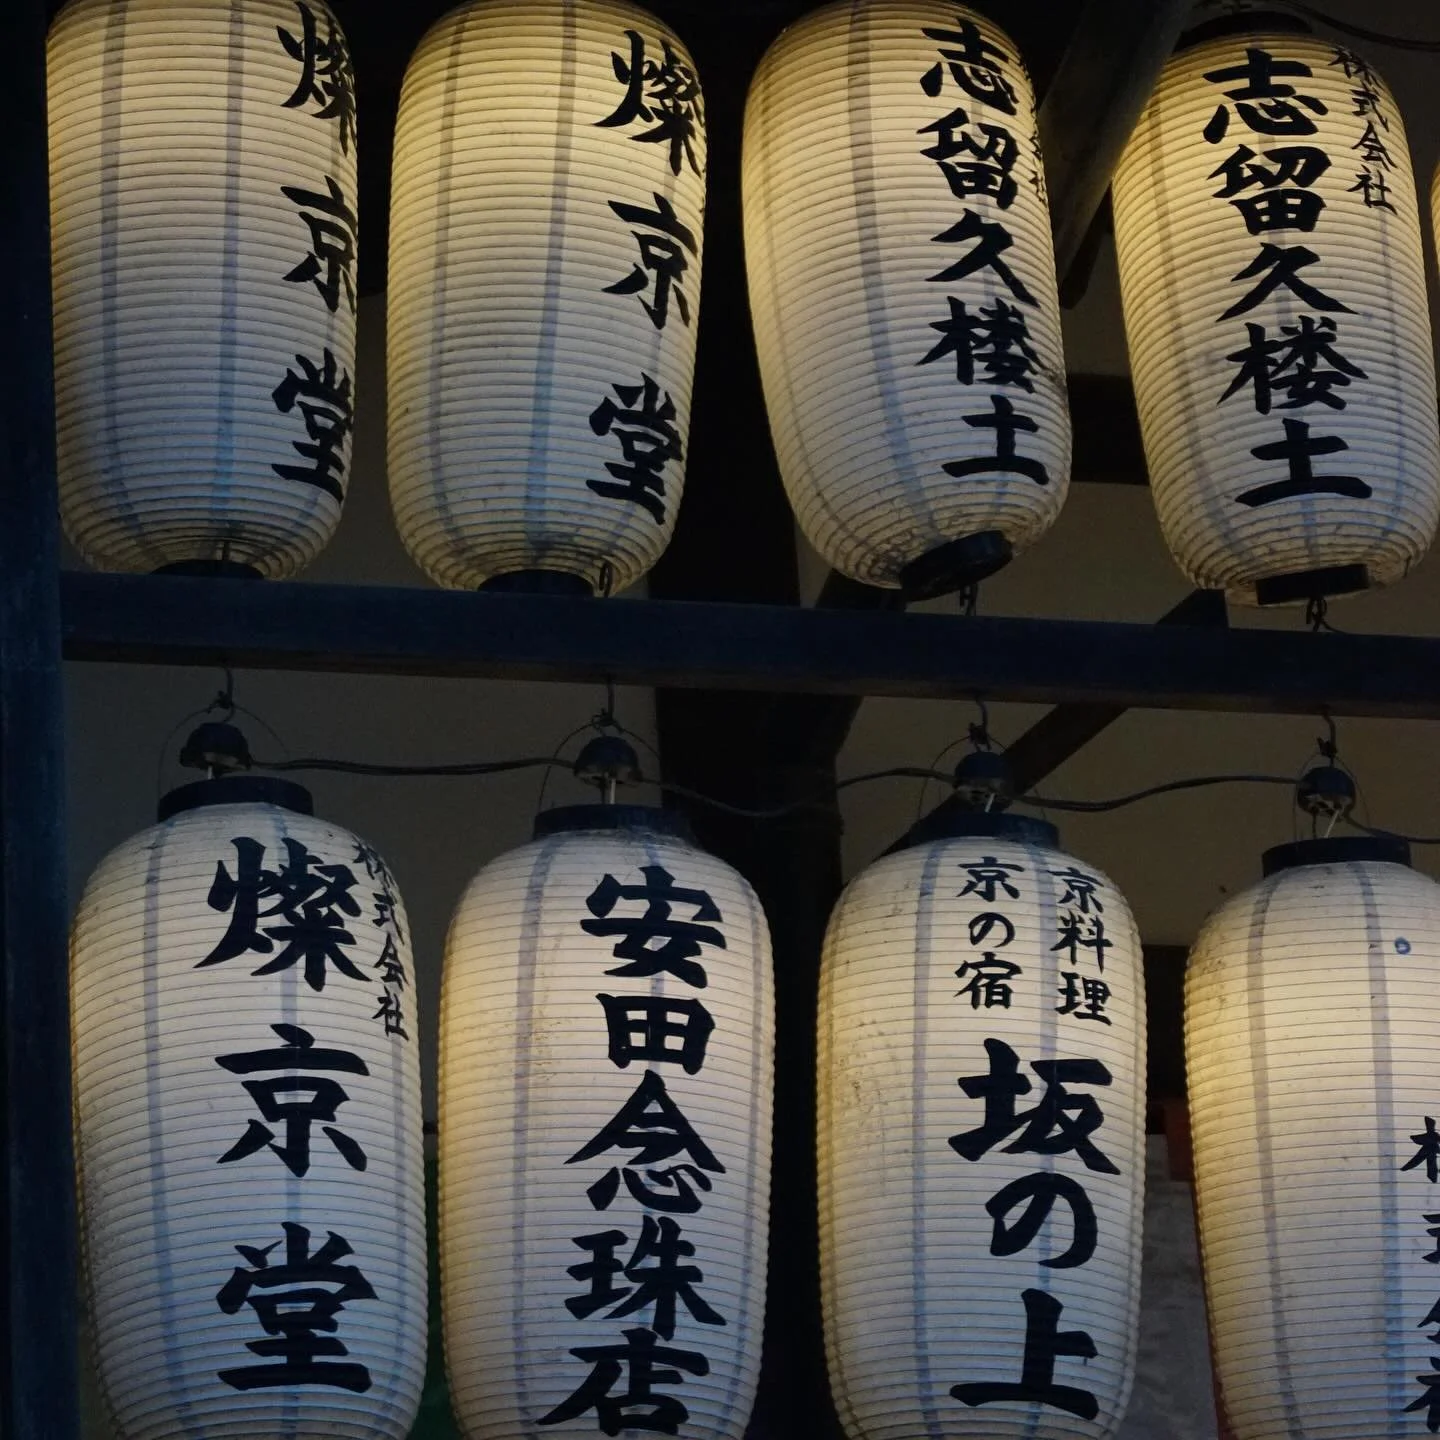 燦京堂
燦京堂
志留久楼土
株式会社
志留久楼土
株式会社
燦京堂
安田念珠店
京料理
京の宿
坂の上